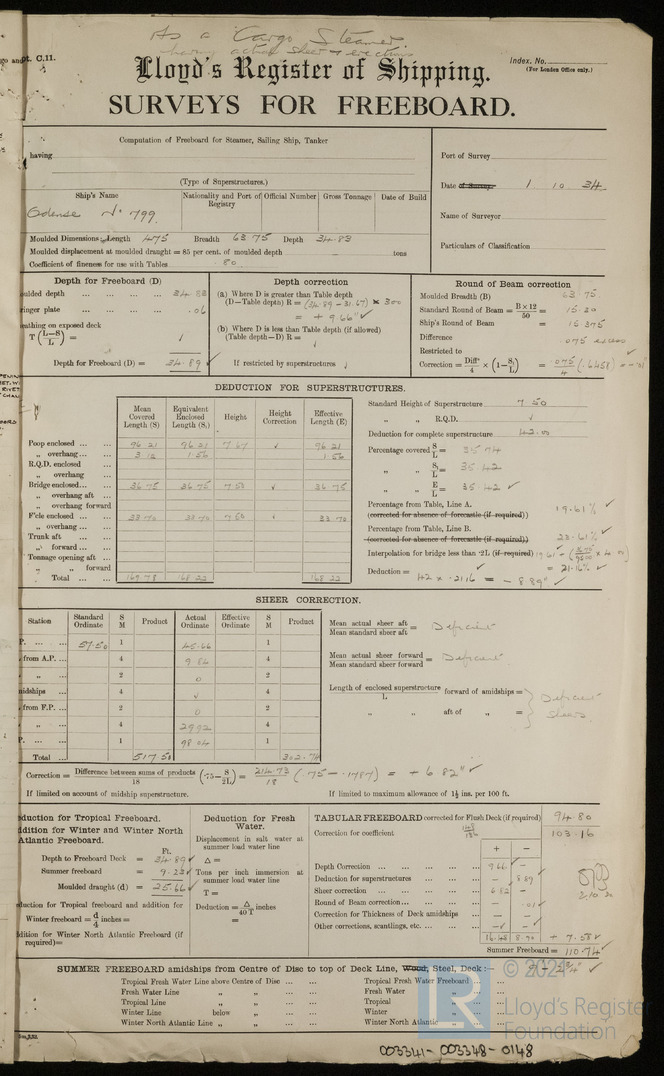 As a Cargo Steamer
having actual sheer & erections
pt. C.11.
Lloyd's Register of Shipping.
Index. No.
(For London Office only.)
SURVEYS FOR FREEBOARD.
Computation of Freeboard for Steamer, Sailing Ship, Tanker
having
(Type of Superstructures.)
Port of Survey
Date of Survey 1 10 34
Name of Surveyor
Particulars of Classification
Ship's Name
Nationality and Port of Registry
Official Number
Gross Tonnage
Date of Build
Odense No 799
Moulded Dimensions: Length 475 Breadth 63.75 Depth 34.83
Moulded displacement at moulded draught = 85 per cent. of moulded depth tons
Coefficient of fineness for use with Tables .80
Depth for Freeboard (D)
ulded depth ... ... ... ... 34.83
ringer plate ... ... ... ... .06
eathing on exposed deck
T (L−S/L) =
Depth for Freeboard (D) = 34.89
Depth correction
(a) Where D is greater than Table depth
(D−Table depth) R = (34.89 − 31.67) × 3.00
= + 9.66"
(b) Where D is less than Table depth (if allowed)
(Table depth−D) R =
If restricted by superstructures
Round of Beam correction
Moulded Breadth (B) 63.75
Standard Round of Beam = B×12/50 = 15.30
Ship's Round of Beam = 15.375
Difference .075 excess
Restricted to
Correction = Diffce/4 × (1−S₁/L) = .075/4 (.6458) =
DEDUCTION FOR SUPERSTRUCTURES.
Mean Covered Length (S)
Equivalent Enclosed Length (S₁)
Height
Height Correction
Effective Length (E)
Poop enclosed ... ... 96.21 96.21 7.67 96.21
„ overhang ... ... 3.12 1.56 1.56
R.Q.D. enclosed
„ overhang
Bridge enclosed ... ... 36.75 36.75 7.50 36.75
„ overhang aft ...
„ overhang forward
F'cle enclosed ... ... 33.70 33.70 7.50 33.70
„ overhang ...
Trunk aft ...
„ forward ...
Tonnage opening aft ...
„ „ forward
Total ... ... 169.78 168.22 168.22
Standard Height of Superstructure 7.50
„ „ R.Q.D.
Deduction for complete superstructure 42.00
Percentage covered S/L = 35.74
„ „ S₁/L = 35.42
„ „ E/L = 35.42
Percentage from Table, Line A. 19.61%
(corrected for absence of forecastle (if required))
Percentage from Table, Line B. 23.61%
(corrected for absence of forecastle (if required))
Interpolation for bridge less than ·2L (if required)
= 21.16%
Deduction = 42 × .2116 = − 8.89"
SHEER CORRECTION.
Station
Standard Ordinate
S M
Product
Actual Ordinate
Effective Ordinate
S M
Product
P. ... ... 57.50 1 45.66 1
from A.P. ... 4 9.86 4
„ ... 2 0 2
midships 4 4
from F.P. ... 2 0 2
„ ... 4 29.92 4
P. ... ... 1 98.04 1
Total ... 517.50
Mean actual sheer aft / Mean standard sheer aft = Deficient
Mean actual sheer forward / Mean standard sheer forward = Deficient
Length of enclosed superstructure / L forward of amidships =
„ „ aft of „ =
Deficient
sheers
Correction = Difference between sums of products / 18 (·75−S/2L) = 214.73/18 (.75 − .1787) = + 6.82"
If limited on account of midship superstructure.
If limited to maximum allowance of 1½ ins. per 100 ft.
duction for Tropical Freeboard.
ddition for Winter and Winter North Atlantic Freeboard.
Ft.
Depth to Freeboard Deck = 34.89
Summer freeboard = 9.23
Moulded draught (d) = 25.66
duction for Tropical freeboard and addition for
Winter freeboard = d/4 inches =
ddition for Winter North Atlantic Freeboard (if required) =
Deduction for Fresh Water.
Displacement in salt water at summer load water line
Δ =
Tons per inch immersion at summer load water line
T =
Deduction = Δ/40 T inches
=
TABULAR FREEBOARD corrected for Flush Deck (if required) 94.80
Correction for coefficient 148/136 103.16
+ −
Depth Correction ... ... 9.66 —
Deduction for superstructures ... — 8.89
Sheer correction ... ... 6.82 —
Round of Beam correction ... — .01
Correction for Thickness of Deck amidships — —
Other corrections, scantlings, etc. ... — —
16.48 8.90 + 7.58
Summer Freeboard = 110.74
SUMMER FREEBOARD amidships from Centre of Disc to top of Deck Line, Wood, Steel, Deck:—
Tropical Fresh Water Line above Centre of Disc ... ...
Fresh Water Line „ „ ... ...
Tropical Line „ „ ... ...
Winter Line below „ ... ...
Winter North Atlantic Line „ „ ... ...
Tropical Fresh Water Freeboard
Fresh Water „
Tropical „
Winter „
Winter North Atlantic „
© 2021
LR
Lloyd's Register
Foundation
003341-003348-0148